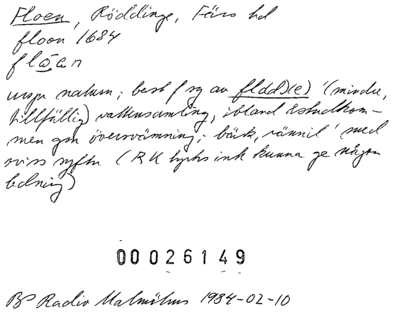 Floen, Röddinge, Färs hd
floon 1684
flǡan
urspr naturn; best f sg av flo(d)(e) '(mindre,
tillfällig) vattensamling, ibland åstadkom-
men gm översvämning; bäck, rännil' med
viss syftn (RK tycks ink kunna ge någon
ledning)
00026149
BP Radio Malmöhus 1984-02-10